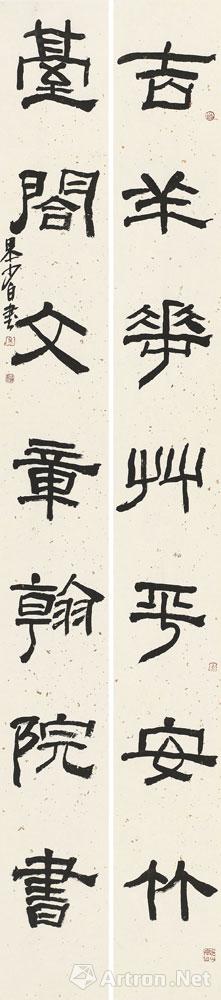 吉羊華艸平安竹
臺閣文章翰院書
少白書
Artron.Net